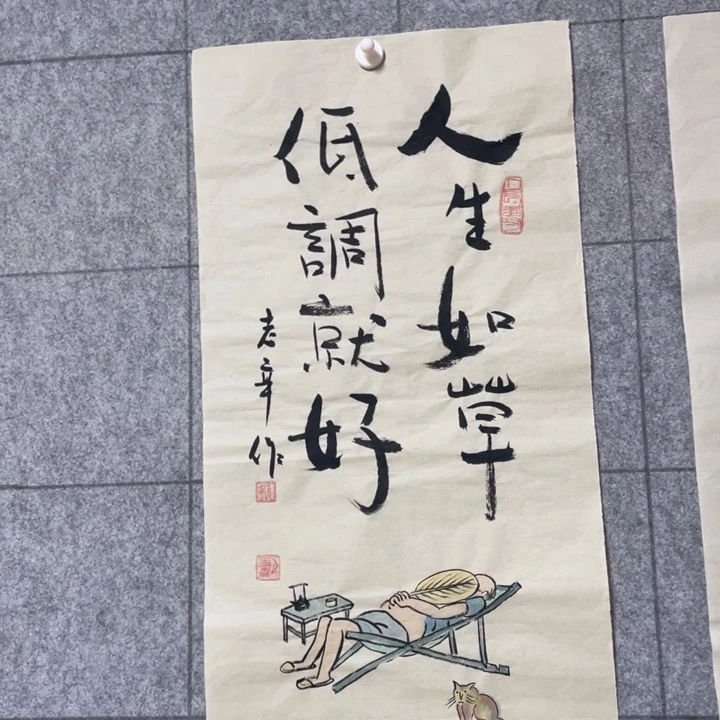 人生如草
低調就好
老辛作